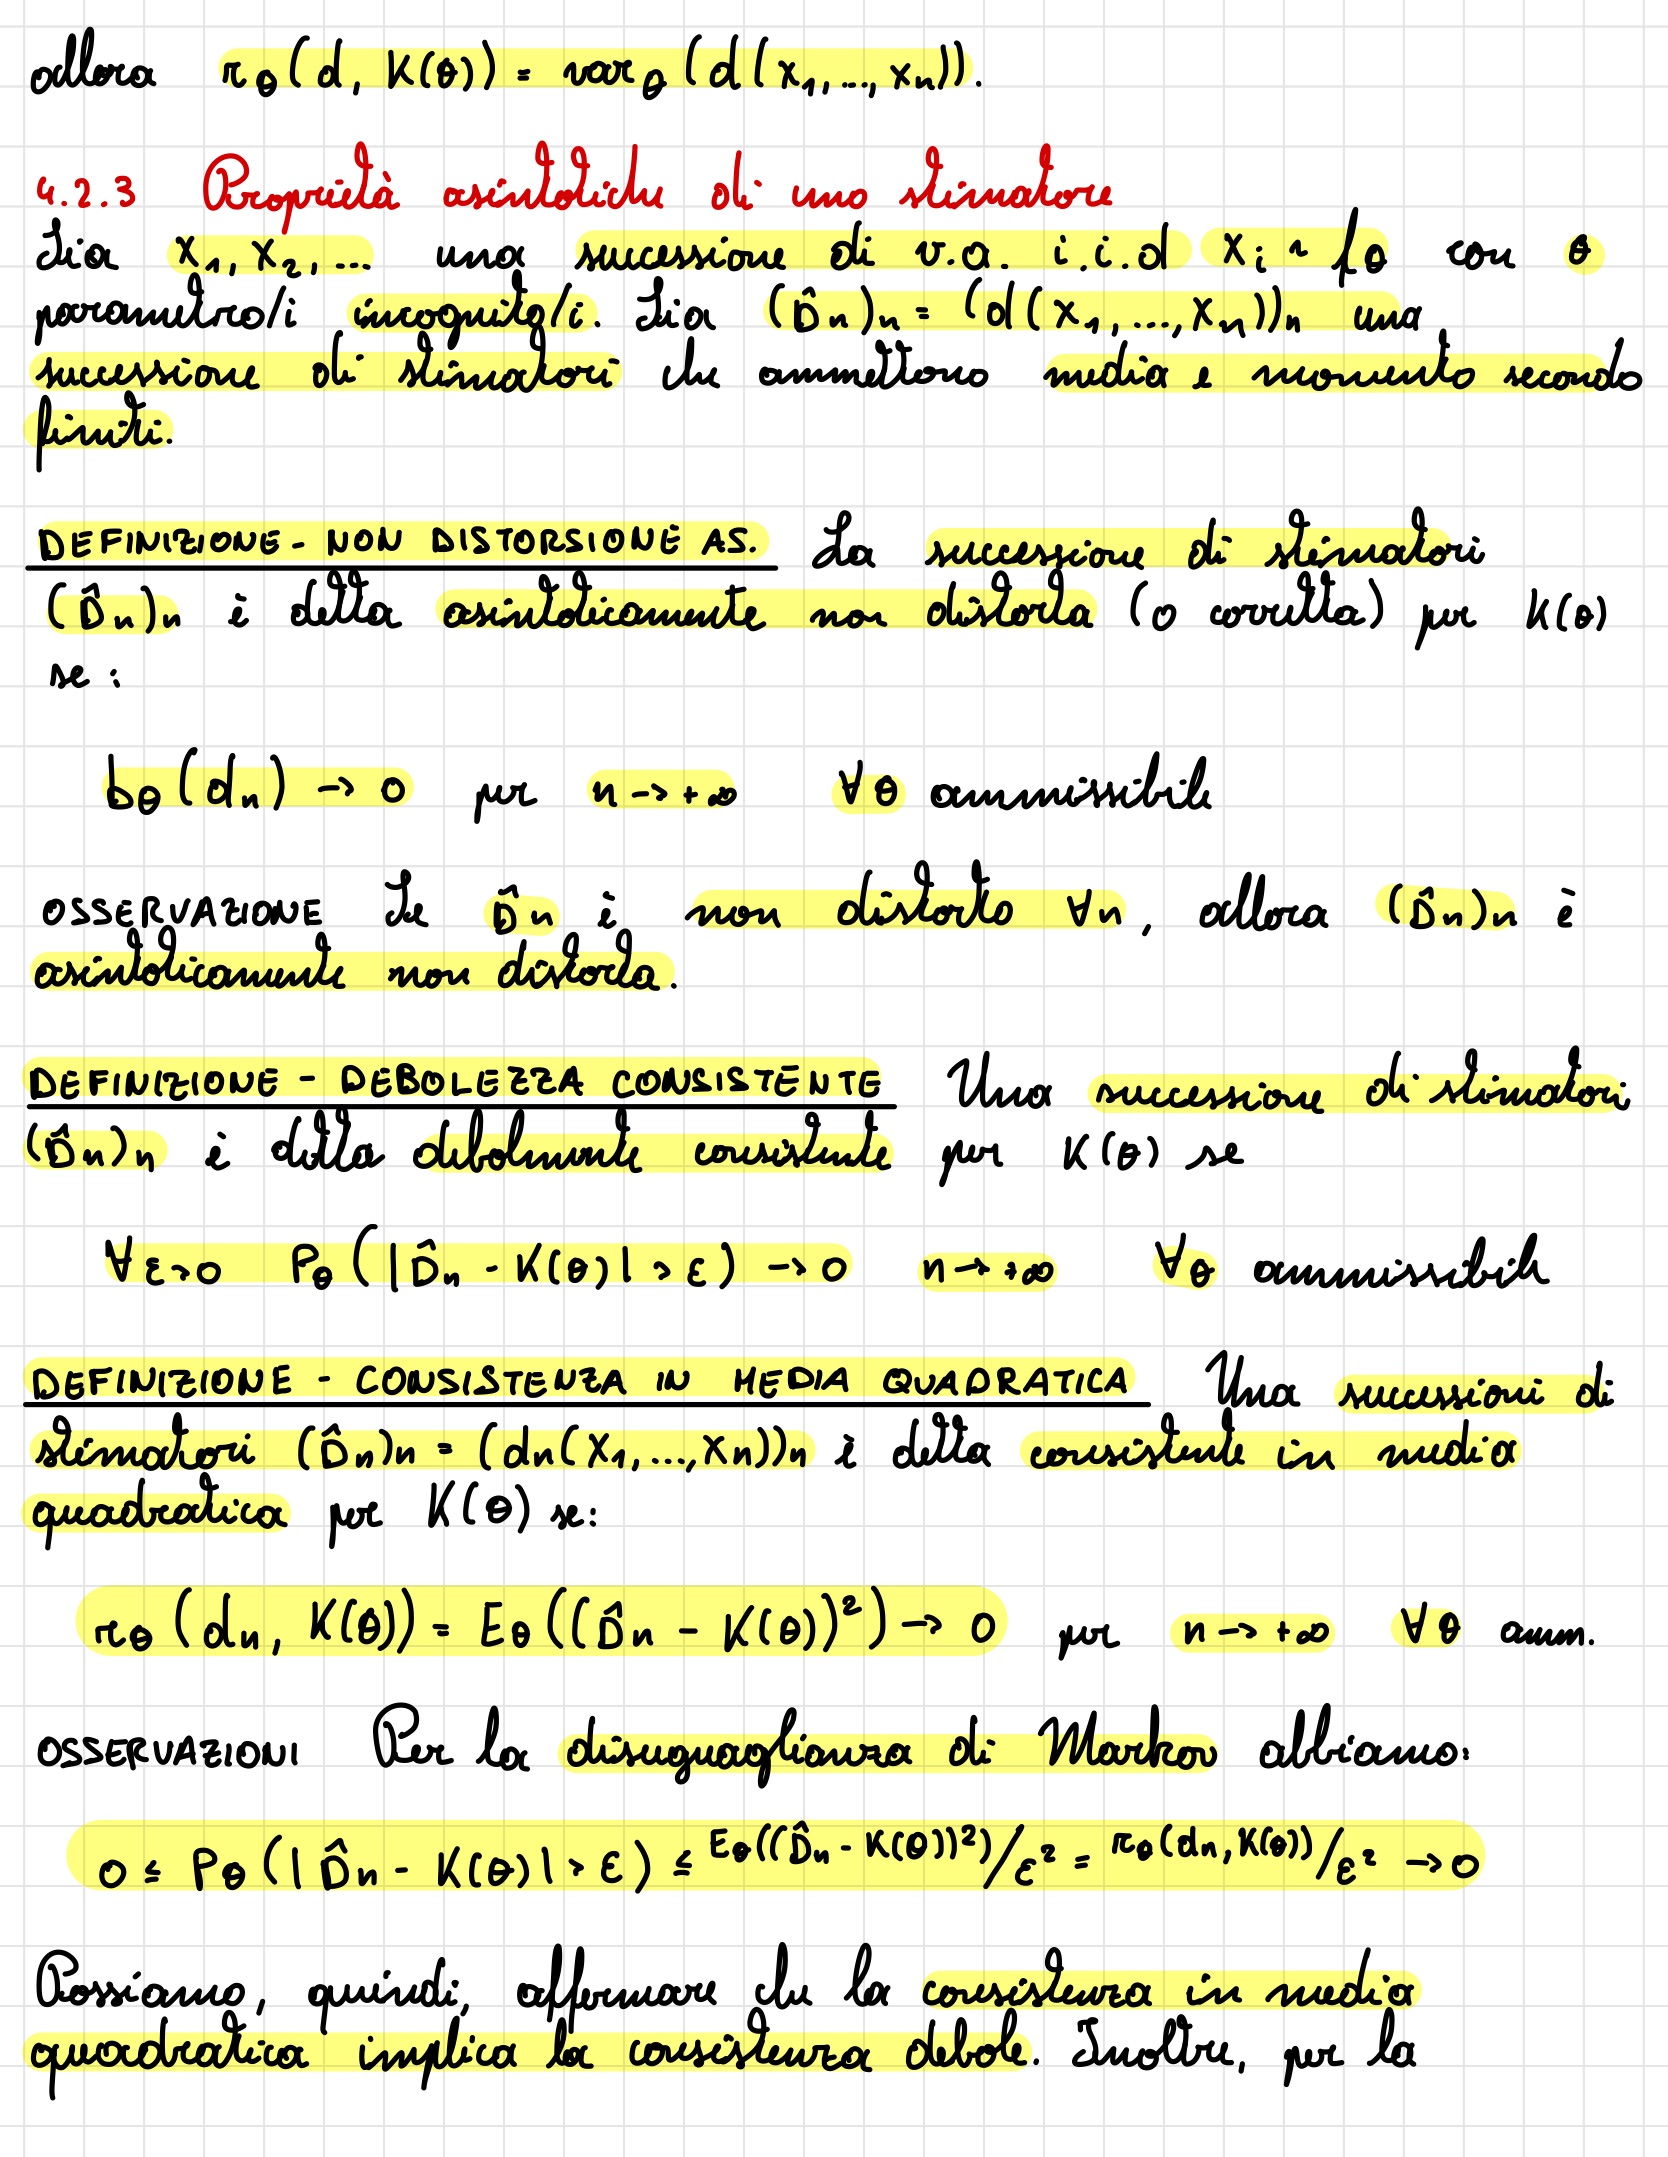 allora r_θ(d, K(θ)) = var_θ(d(x_1,...,x_n)).
4.2.3 Proprietà asintotiche di uno stimatore
Sia X_1, X_2, ... una successione di v.a. i.i.d X_i ~ f_θ con θ
parametro/i incognito/i. Sia (D̂_n)_n = (d(X_1,...,X_n))_n una
successione di stimatori che ammettono media e momento secondo
finiti.
DEFINIZIONE - NON DISTORSIONE AS. La successione di stimatori
(D̂_n)_n è detta asintoticamente non distorta (o corretta) per K(θ)
se:
b_θ(d_n) → 0 per n → +∞ ∀θ ammissibile
OSSERVAZIONE Se D̂_n è non distorto ∀n, allora (D̂_n)_n è
asintoticamente non distorta.
DEFINIZIONE - DEBOLEZZA CONSISTENTE Una successione di stimatori
(D̂_n)_n è detta debolmente consistente per K(θ) se
∀ε>0 P_θ(|D̂_n - K(θ)| > ε) → 0 n → +∞ ∀θ ammissibile
DEFINIZIONE - CONSISTENZA IN MEDIA QUADRATICA Una successioni di
stimatori (D̂_n)_n = (d_n(X_1,...,X_n))_n è detta consistente in media
quadratica per K(θ) se:
r_θ(d_n, K(θ)) = E_θ((D̂_n - K(θ))²) → 0 per n → +∞ ∀θ amm.
OSSERVAZIONI Per la disuguaglianza di Markov abbiamo:
0 ≤ P_θ(|D̂_n - K(θ)| > ε) ≤ E_θ((D̂_n - K(θ))²)/ε² = r_θ(d_n, K(θ))/ε² → 0
Possiamo, quindi, affermare che la consistenza in media
quadratica implica la consistenza debole. Inoltre, per la